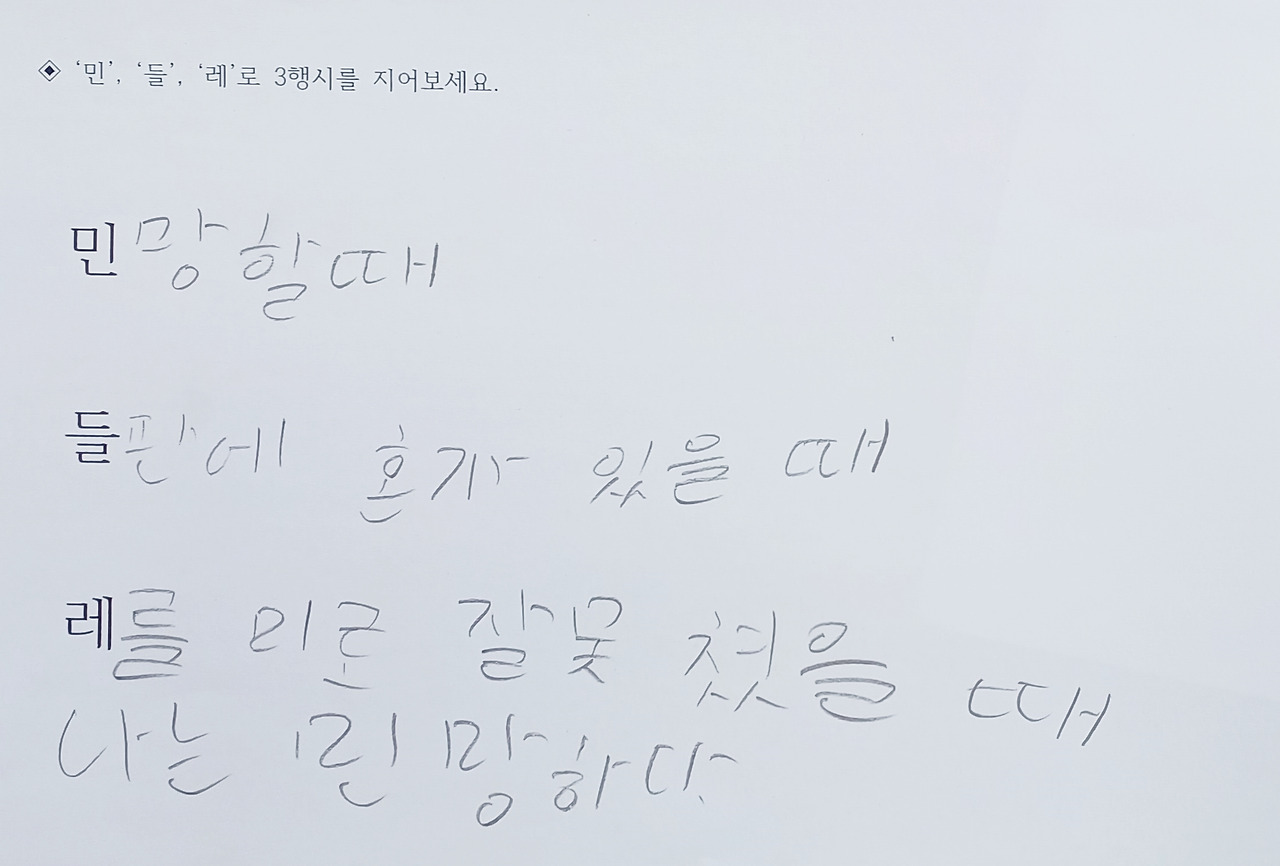 ◈ ‘민’, ‘들’, ‘레’로 3행시를 지어보세요.
민망할때
들판에 혼자 있을 때
레를 미로 잘못 쳤을 때
나는 민망하다.